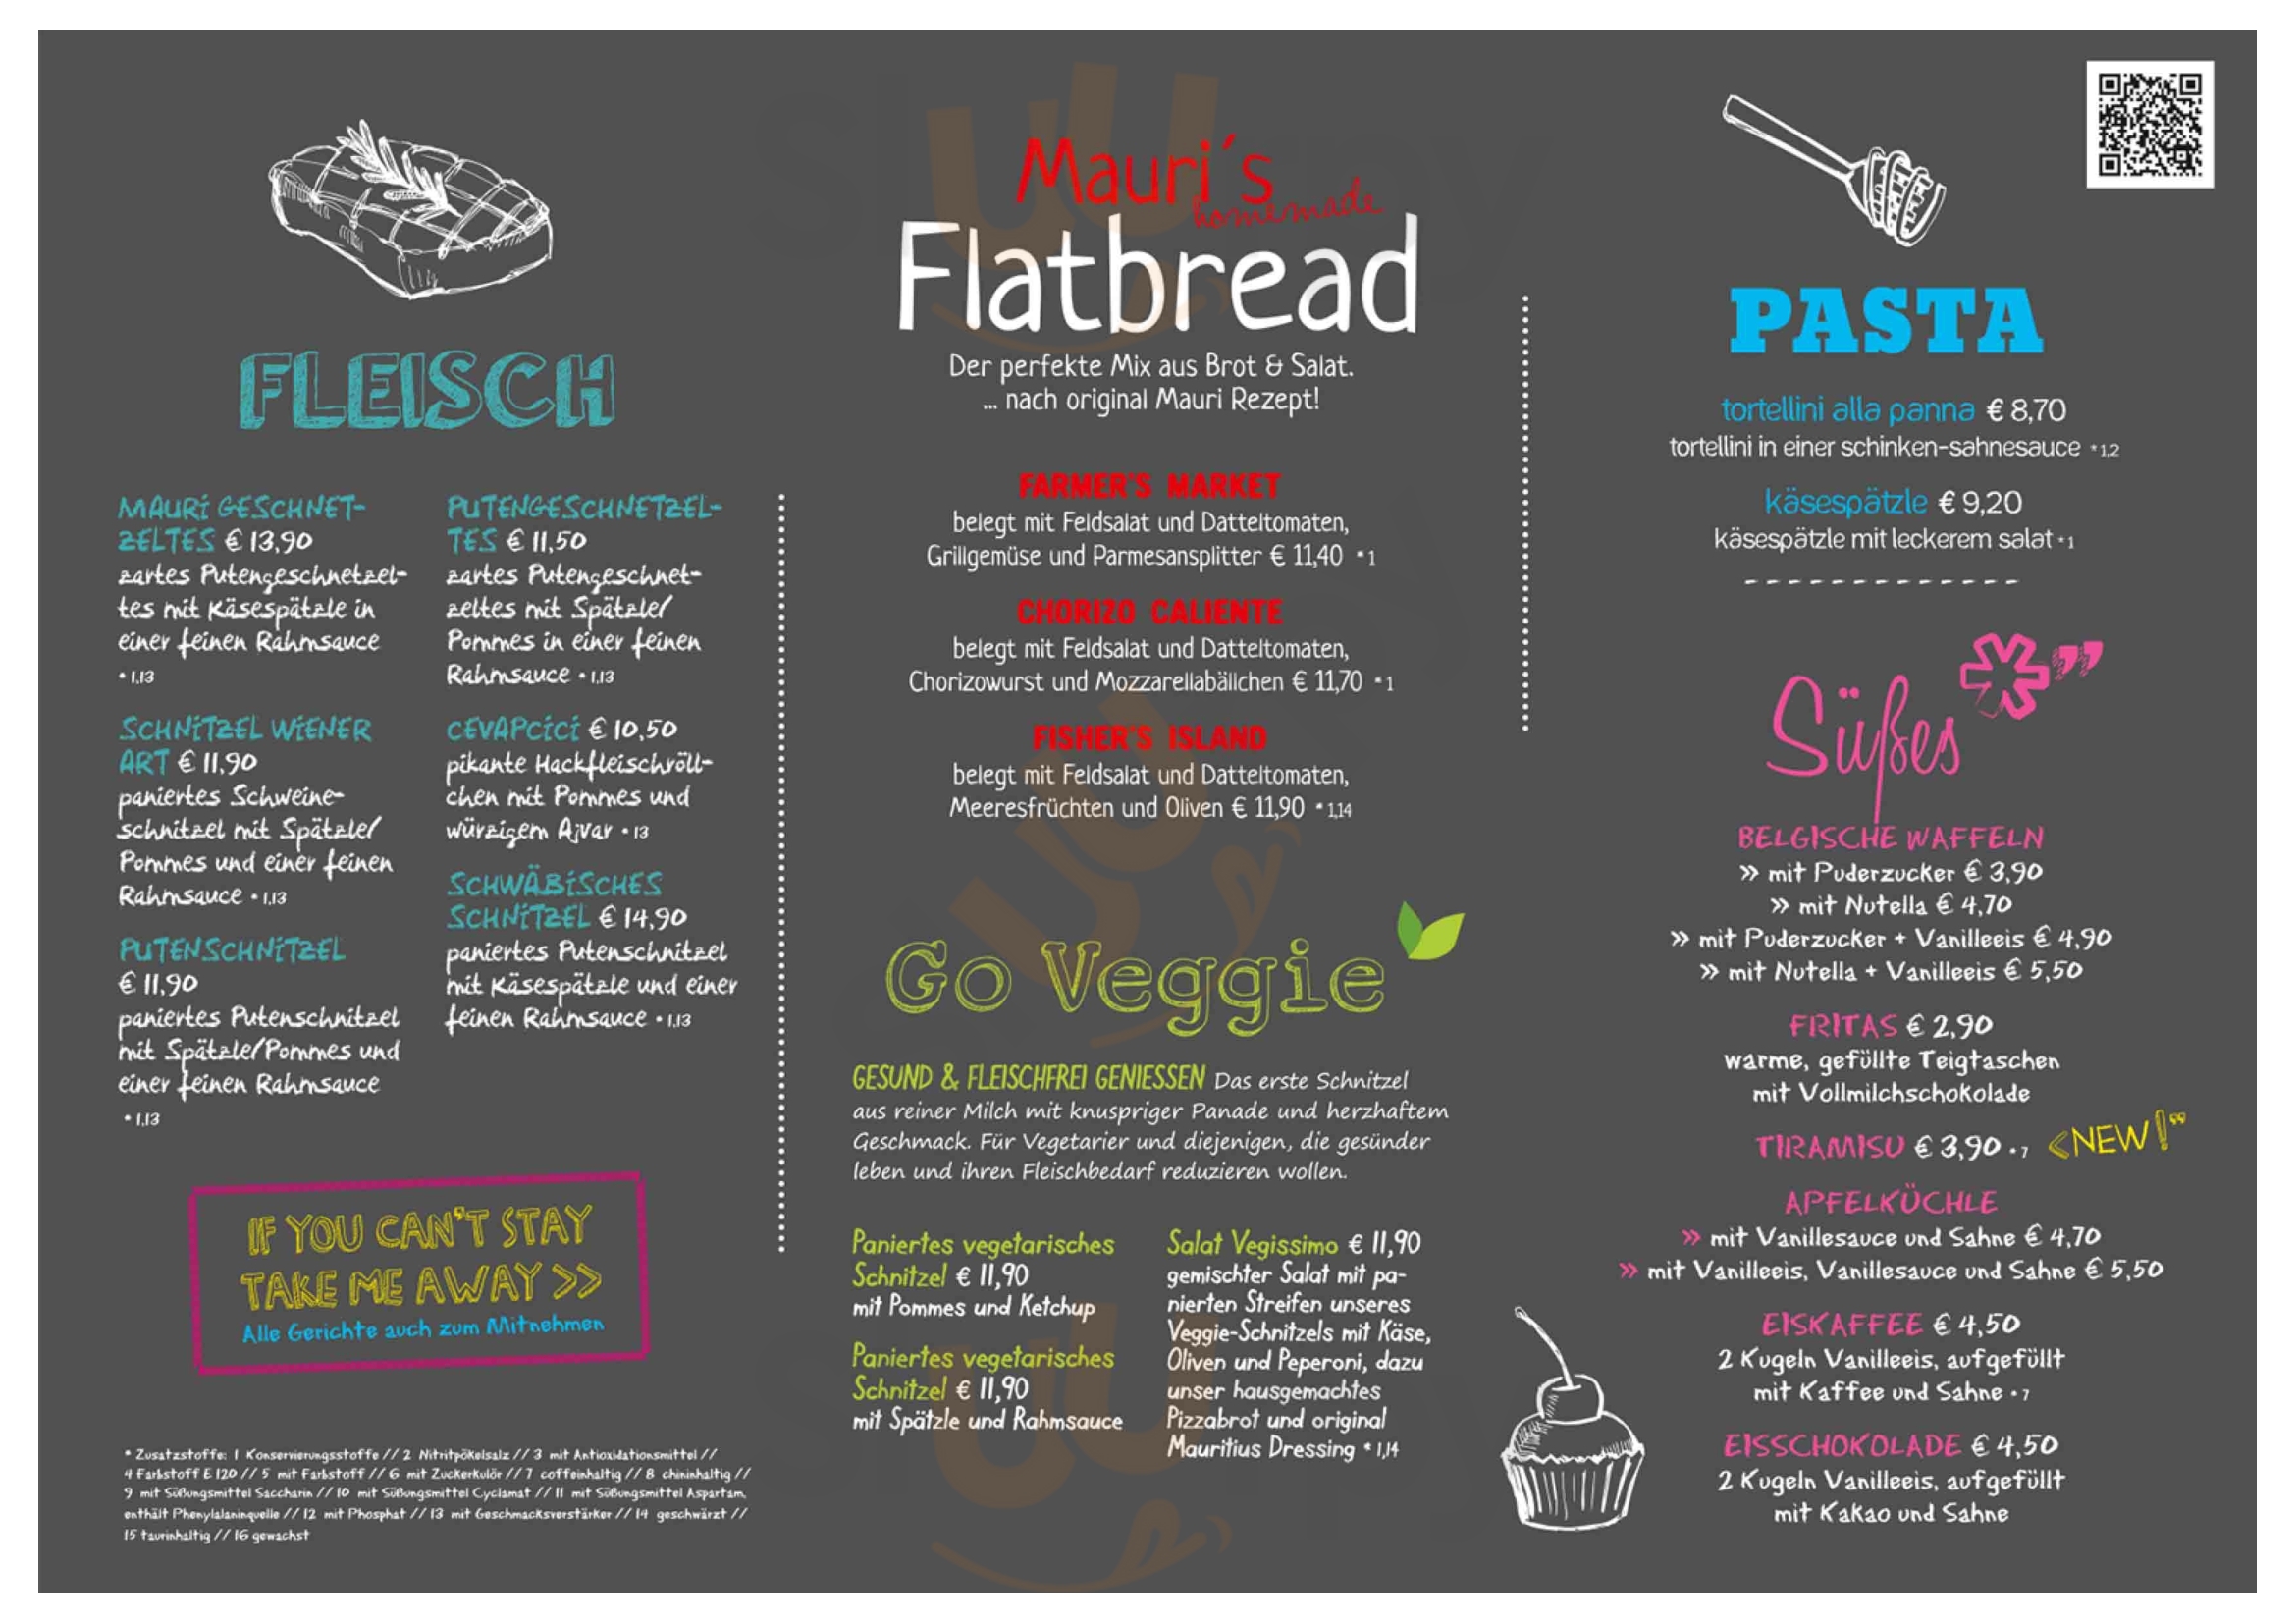 FLEISCH
MAURI GESCHNET-
ZELTES € 13,90
zartes Putengeschnetzel-
tes mit Käsespätzle in
einer feinen Rahmsauce
* 1,13
SCHNITZEL WIENER
ART € 11,90
paniertes Schweine-
schnitzel mit Spätzle/
Pommes und einer feinen
Rahmsauce * 1,13
PUTENSCHNITZEL
€ 11,90
paniertes Putenschnitzel
mit Spätzle/Pommes und
einer feinen Rahmsauce
* 1,13
PUTENGESCHNETZEL-
TES € 11,50
zartes Putengeschnet-
zeltes mit Spätzle/
Pommes in einer feinen
Rahmsauce * 1,13
CEVAPCICI € 10,50
pikante Hackfleischröll-
chen mit Pommes und
würzigem Ajvar * 13
SCHWÄBISCHES
SCHNITZEL € 14,90
paniertes Putenschnitzel
mit Käsespätzle und einer
feinen Rahmsauce * 1,13
IF YOU CAN'T STAY
TAKE ME AWAY >>
Alle Gerichte auch zum Mitnehmen
* Zusatzstoffe: 1 Konservierungsstoffe // 2 Nitritpökelsalz // 3 mit Antioxidationsmittel //
4 Farbstoff E 120 // 5 mit Farbstoff // 6 mit Zuckerkulör // 7 coffeinhaltig // 8 chininhaltig //
9 mit Süßungsmittel Saccharin // 10 mit Süßungsmittel Cyclamat // 11 mit Süßungsmittel Aspartam,
enthält Phenylalaninquelle // 12 mit Phosphat // 13 mit Geschmacksverstärker // 14 geschwärzt //
15 taurinhaltig // 16 gewachst
Mauri´s
homemade
Flatbread
Der perfekte Mix aus Brot & Salat.
... nach original Mauri Rezept!
FARMER'S MARKET
belegt mit Feldsalat und Datteltomaten,
Grillgemüse und Parmesansplitter € 11,40 * 1
CHORIZO CALIENTE
belegt mit Feldsalat und Datteltomaten,
Chorizowurst und Mozzarellabällchen € 11,70 * 1
FISHER'S ISLAND
belegt mit Feldsalat und Datteltomaten,
Meeresfrüchten und Oliven € 11,90 * 1,14
Go Veggie
GESUND & FLEISCHFREI GENIESSEN Das erste Schnitzel
aus reiner Milch mit knuspriger Panade und herzhaftem
Geschmack. Für Vegetarier und diejenigen, die gesünder
leben und ihren Fleischbedarf reduzieren wollen.
Paniertes vegetarisches
Schnitzel € 11,90
mit Pommes und Ketchup
Paniertes vegetarisches
Schnitzel € 11,90
mit Spätzle und Rahmsauce
Salat Vegissimo € 11,90
gemischter Salat mit pa-
nierten Streifen unseres
Veggie-Schnitzels mit Käse,
Oliven und Peperoni, dazu
unser hausgemachtes
Pizzabrot und original
Mauritius Dressing * 1,14
PASTA
tortellini alla panna € 8,70
tortellini in einer schinken-sahnesauce * 1,2
käsespätzle € 9,20
käsespätzle mit leckerem salat * 1
Süßes
BELGISCHE WAFFELN
» mit Puderzucker € 3,90
» mit Nutella € 4,70
» mit Puderzucker + Vanilleeis € 4,90
» mit Nutella + Vanilleeis € 5,50
FRITAS € 2,90
warme, gefüllte Teigtaschen
mit Vollmilchschokolade
TIRAMISU € 3,90 * 7 <NEW!"
APFELKÜCHLE
» mit Vanillesauce und Sahne € 4,70
» mit Vanilleeis, Vanillesauce und Sahne € 5,50
EISKAFFEE € 4,50
2 Kugeln Vanilleeis, aufgefüllt
mit Kaffee und Sahne * 7
EISSCHOKOLADE € 4,50
2 Kugeln Vanilleeis, aufgefüllt
mit Kakao und Sahne